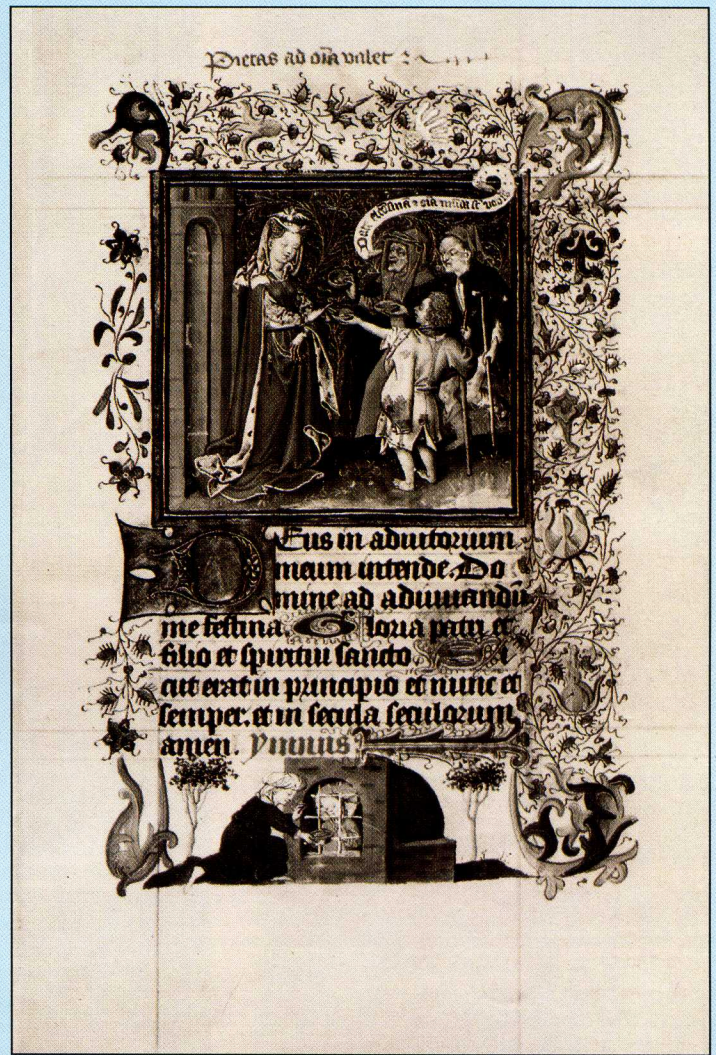 Pietas ad oīa valet
Date elemosinā
Eus in adiutorium
meum intende. Do
mine ad adiuuandū
me festina. Gloria patri et
filio et spiritui sancto. Si
cut erat in principio et nunc et
semper. et in secula seculorum,
amen. ymnus